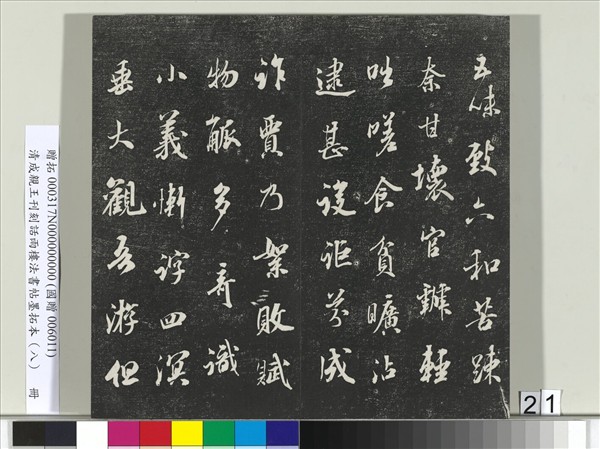 五味六和苦踈
柰甘壞官
嗟食貧曠沾
逮甚設詎芬成
詐賈乃架敗賦
物觚多奇識
小義慚浮四溟
垂大觀吾游但
贈拓 000317N000000000 (國贈 006011)
清成親王刊刻話雨樓法書帖墨拓本（八） 冊
21